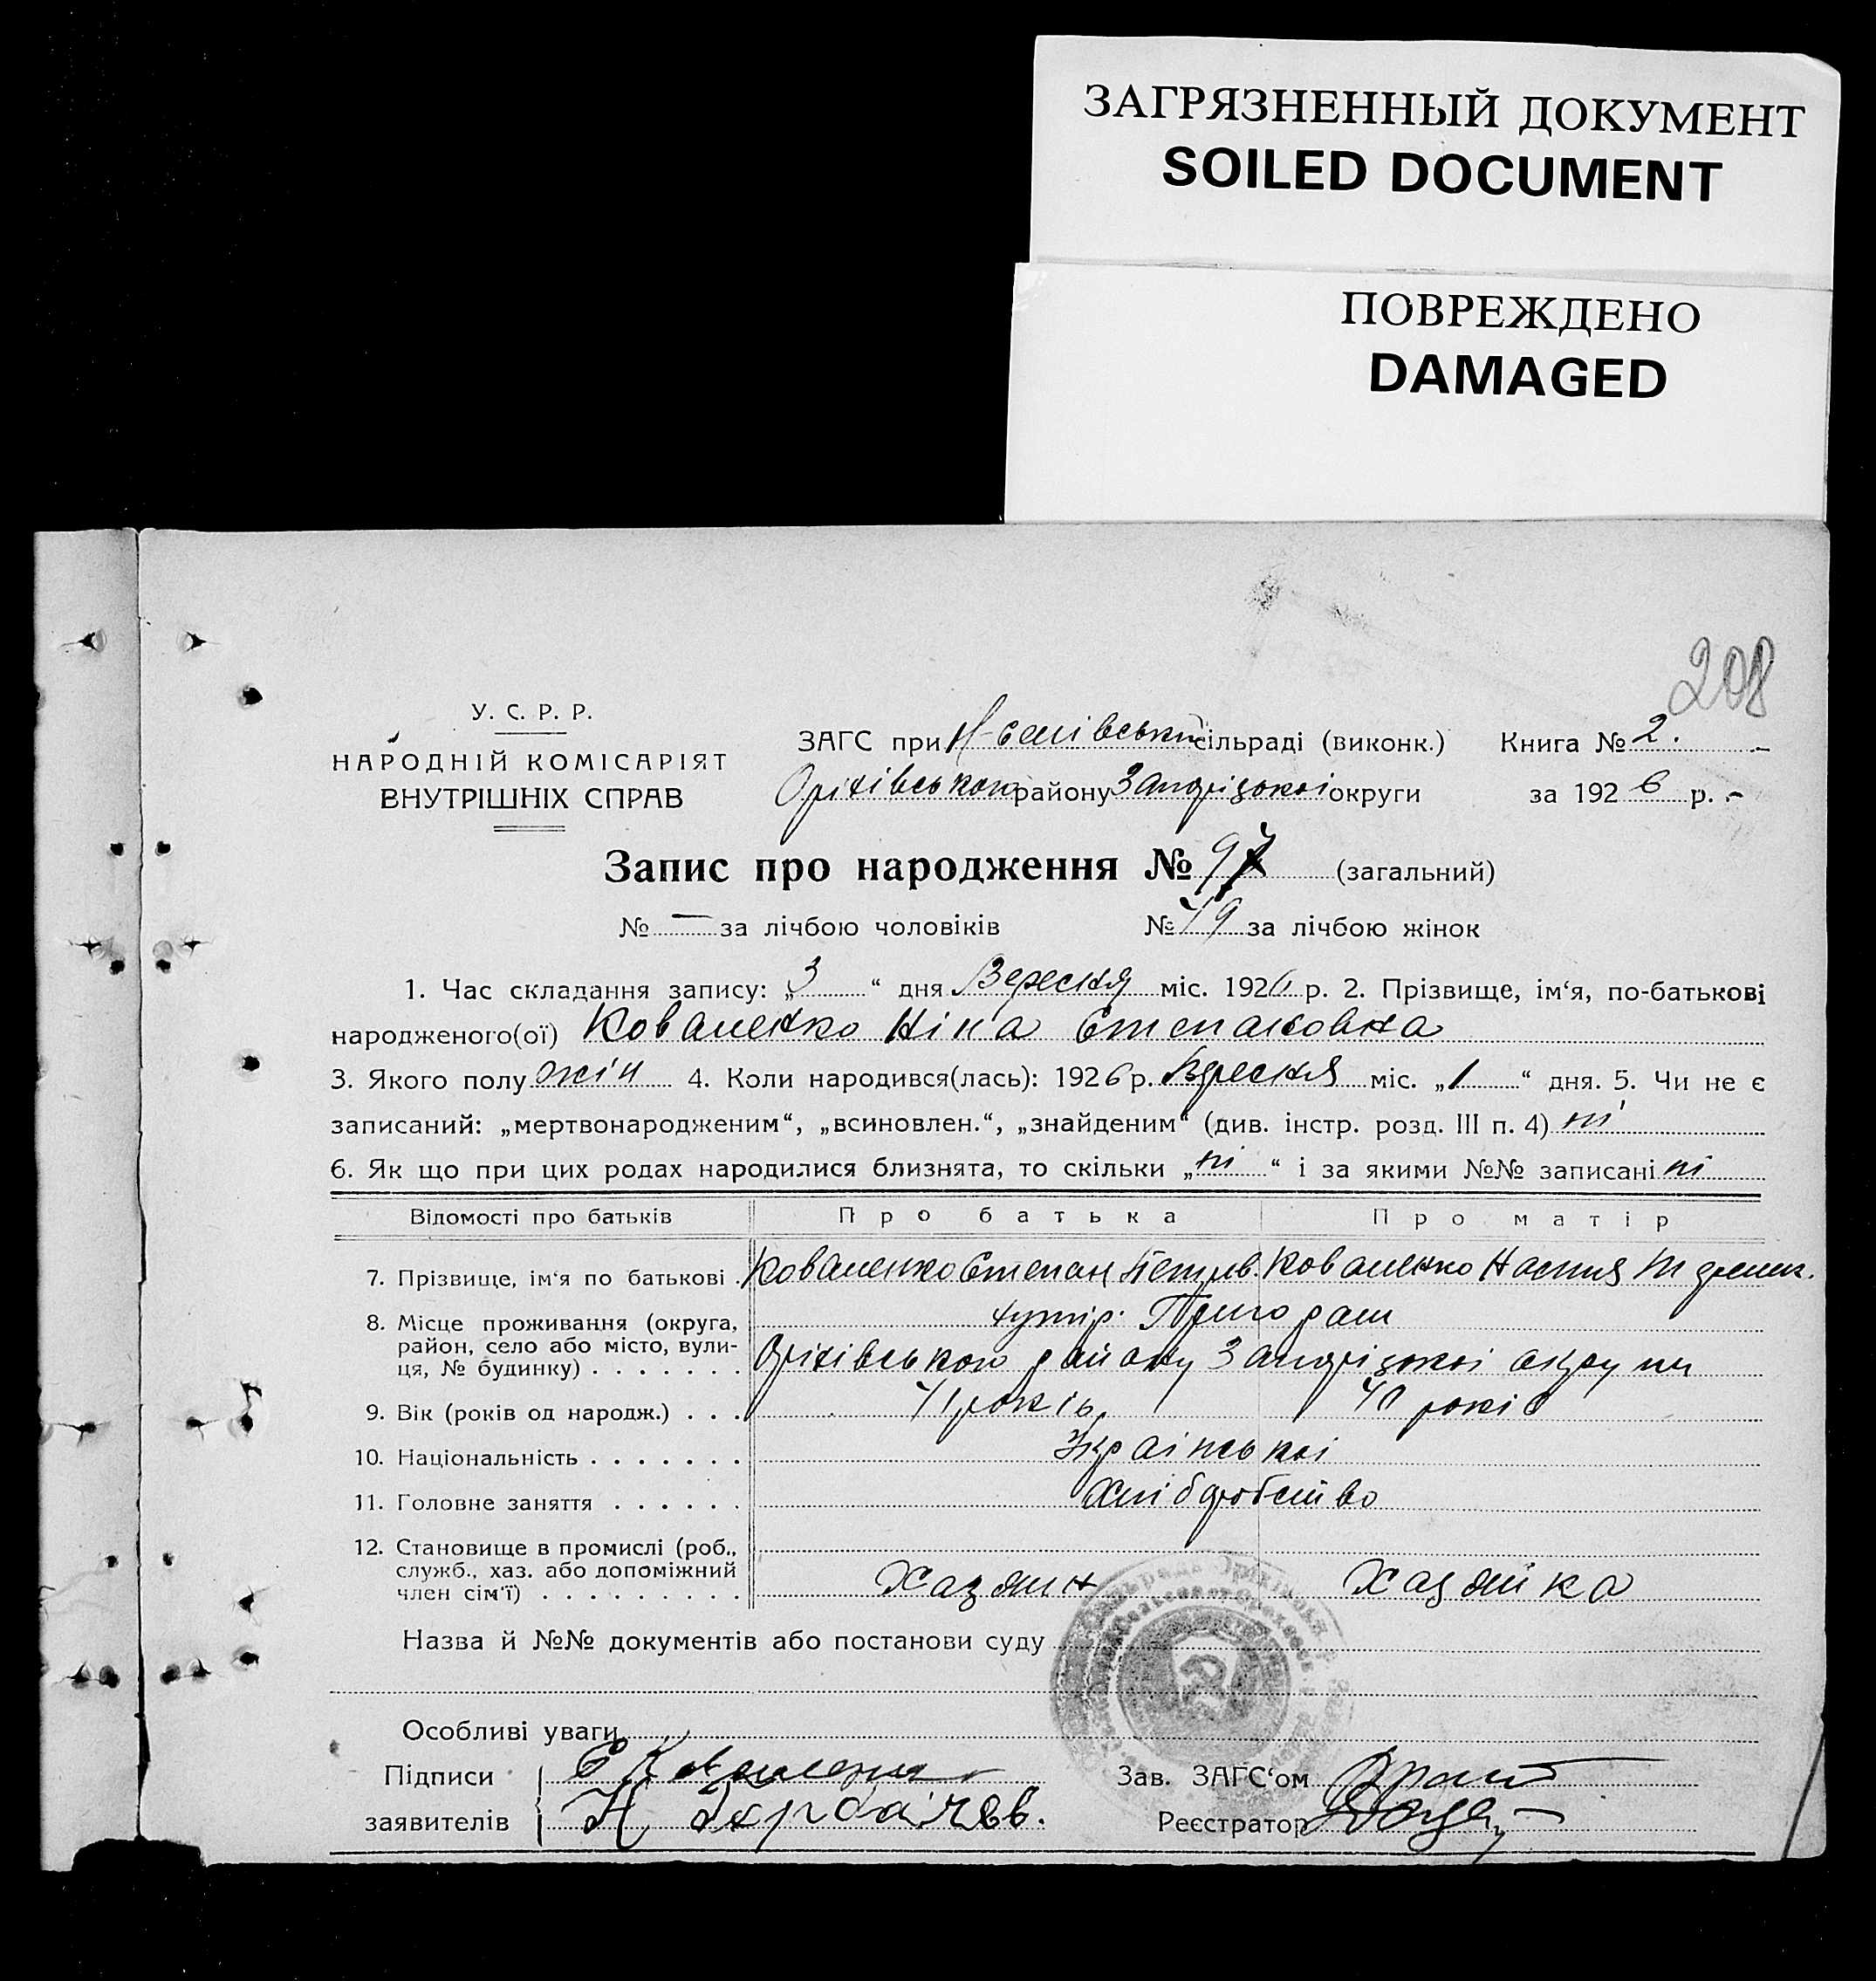 ЗАГРЯЗНЕННЫЙ ДОКУМЕНТ
SOILED DOCUMENT
ПОВРЕЖДЕНО
DAMAGED
208
У. С. Р. Р.
НАРОДНІЙ КОМІСАРІЯТ
ВНУТРІШНІХ СПРАВ
ЗАГС при сільраді (виконк.) Книга № 2.
Оріхівського району Запоріцької округи за 1926 р.
Запис про народження № 97 (загальний)
№ — за лічбою чоловіків № 49 за лічбою жінок
1. Час складання запису: „3“ дня Вересня міс. 1926 р. 2. Прізвище, ім‘я, по-батькові
народженого(ої) Коваленко Ніна Степановна
3. Якого полу жін 4. Коли народився(лась): 1926 р. Вересня міс. „1“ дня. 5. Чи не є
записаний: „мертвонародженим“, „всиновлен.“, „знайденим“ (див. інстр. розд. III п. 4) ні
6. Як що при цих родах народилися близнята, то скільки „ні“ і за якими №№ записані ні
Відомості про батьків Про батька Про матір
7. Прізвище, ім‘я по батькові . Коваленко Степан Петров. Коваленко Настя
8. Місце проживання (округа, хутір
район, село або місто, вули-
ця, № будинку) . . . . . . . Оріхівського району Запоріцької округи
9. Вік (років од народж.) . . . 41 років. 40 років
10. Національність . . . . . . . Української
11. Головне заняття . . . . . . Хліборобство
12. Становище в промислі (роб.,
служб., хаз. або допоміжний
член сім‘ї) . . . . . . . . . Хазяин Хазяйка
Назва й №№ документів або постанови суду
Особливі уваги
Підписи
заявителів
Зав. ЗАГС‘ом
Реєстратор